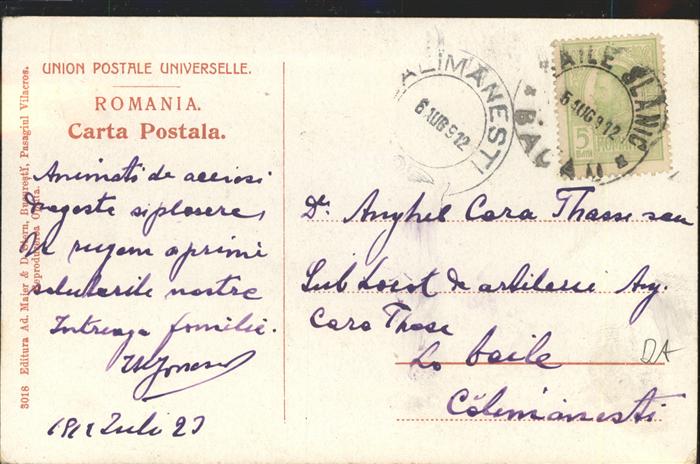 UNION POSTALE UNIVERSELLE.
ROMANIA.
Carta Postala.
3018 Editura Ad. Maier & D. Stern, Bucureştĭ, Pasagiul Vilacros.
Reproducerea Oprita.
Animati de aceiasi
Dragoste si placere,
Va rugam a primi
salutarile nostre
Intreaga familie.
Ionescu
1912 Iulie 23
CALIMANESTI
6 AUG 912
BAILE SLANIC
6 AUG 912
* BACAU *
5 BANI
ROMANIA
Dr. Anghel Cara Thasse sau
Sub Locot de artilerie Ang.
Cara Thase
La baile
Călimănesti
DA